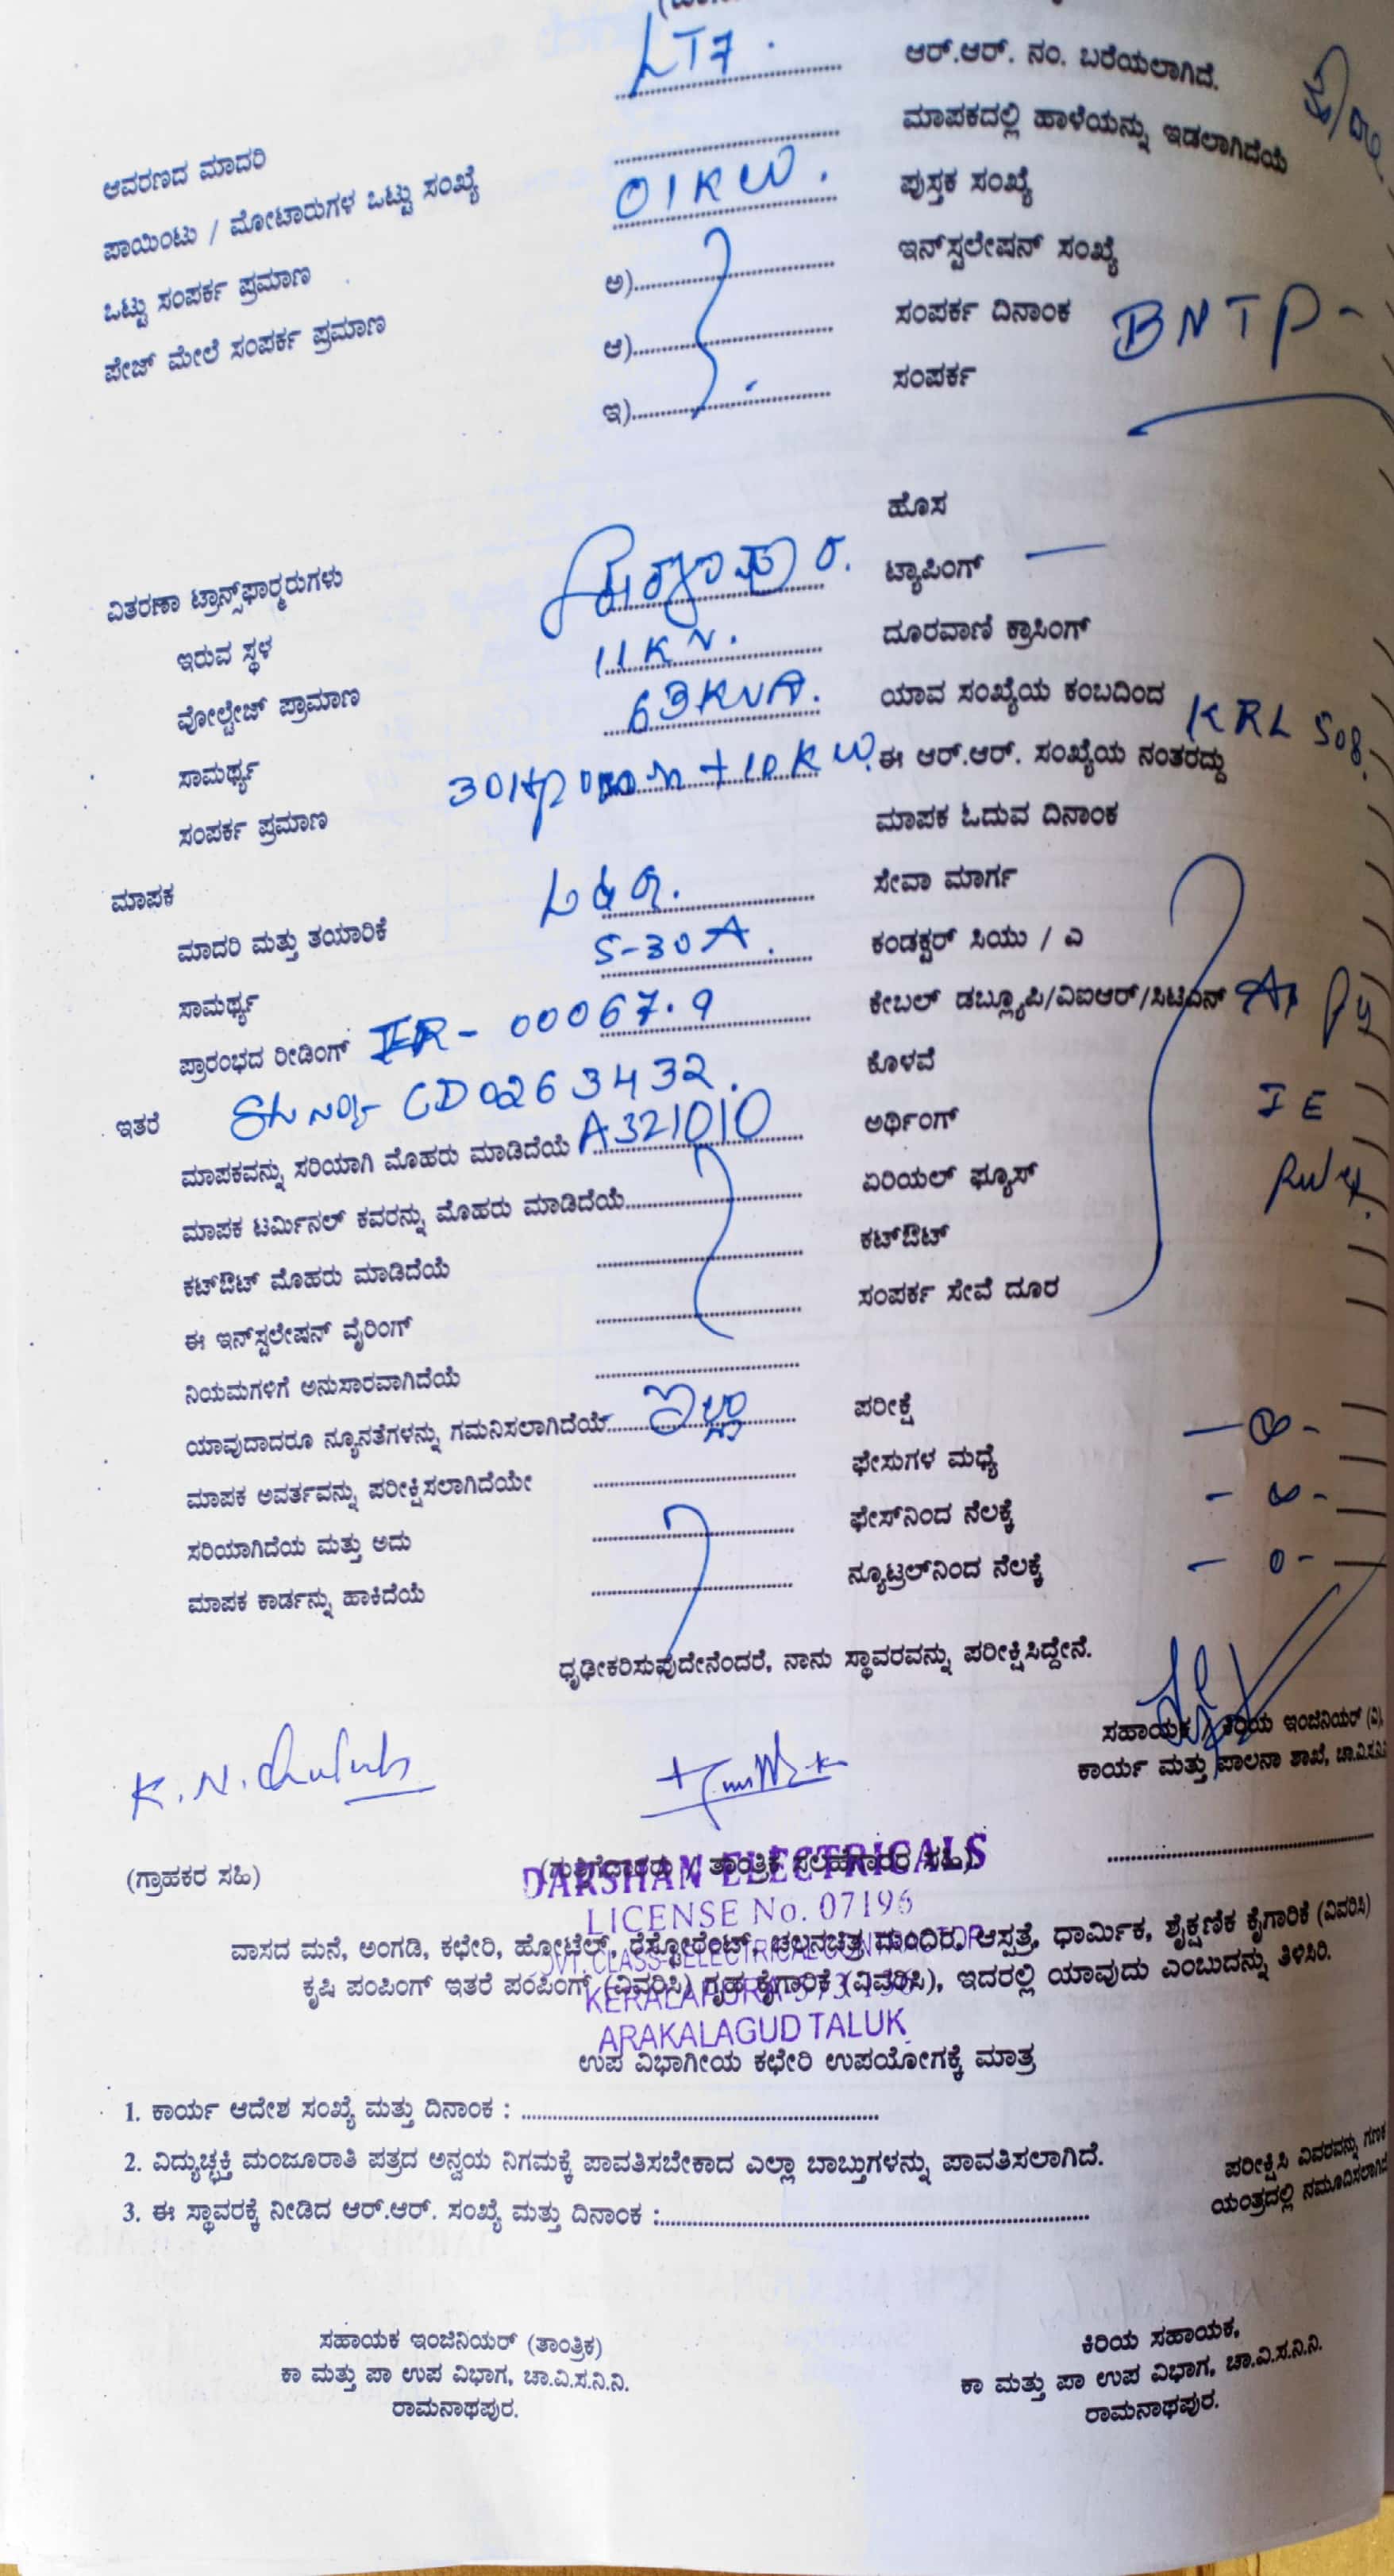 LT7. ಆರ್.ಆರ್. ನಂ. ಬರೆಯಲಾಗಿದೆ.
ಆವರಣದ ಮಾದರಿ ಮಾಪಕದಲ್ಲಿ ಹಾಳೆಯನ್ನು ಇಡಲಾಗಿದೆಯೆ
ಪಾಯಿಂಟು / ಮೋಟಾರುಗಳ ಒಟ್ಟು ಸಂಖ್ಯೆ 01KW. ಪುಸ್ತಕ ಸಂಖ್ಯೆ
ಒಟ್ಟು ಸಂಪರ್ಕ ಪ್ರಮಾಣ ಅ) ಇನ್‌ಸ್ಟಲೇಷನ್ ಸಂಖ್ಯೆ
ಪೇಜ್ ಮೇಲೆ ಸಂಪರ್ಕ ಪ್ರಮಾಣ ಆ) ಸಂಪರ್ಕ ದಿನಾಂಕ BNTP-
ಇ) ಸಂಪರ್ಕ
ಹೊಸ
ವಿತರಣಾ ಟ್ರಾನ್ಸ್‌ಫಾರ್ಮರುಗಳು ಟ್ಯಾಪಿಂಗ್ —
ಇರುವ ಸ್ಥಳ 11KV. ದೂರವಾಣಿ ಕ್ರಾಸಿಂಗ್
ವೋಲ್ಟೇಜ್ ಪ್ರಾಮಾಣ 63KVA. ಯಾವ ಸಂಖ್ಯೆಯ ಕಂಬದಿಂದ
ಸಾಮರ್ಥ್ಯ 30HP + 10KW. ಈ ಆರ್.ಆರ್. ಸಂಖ್ಯೆಯ ನಂತರದ್ದು KRL 508.
ಸಂಪರ್ಕ ಪ್ರಮಾಣ ಮಾಪಕ ಓದುವ ದಿನಾಂಕ
ಮಾಪಕ L&G. ಸೇವಾ ಮಾರ್ಗ
ಮಾದರಿ ಮತ್ತು ತಯಾರಿಕೆ 5-30A. ಕಂಡಕ್ಟರ್ ಸಿಯು / ಎ
ಸಾಮರ್ಥ್ಯ ಕೇಬಲ್ ಡಬ್ಲ್ಯೂಪಿ/ವಿಐಆರ್/ಸಿಟಿಎನ್
ಪ್ರಾರಂಭದ ರೀಡಿಂಗ್ IR- 00067.9 ಕೊಳವೆ
ಇತರೆ SL NO:- CD0263432. ಅರ್ಥಿಂಗ್ IE
ಮಾಪಕವನ್ನು ಸರಿಯಾಗಿ ಮೊಹರು ಮಾಡಿದೆಯೆ A321010 ಏರಿಯಲ್ ಫ್ಯೂಸ್
ಮಾಪಕ ಟರ್ಮಿನಲ್ ಕವರನ್ನು ಮೊಹರು ಮಾಡಿದೆಯೆ ಕಟ್‌ಔಟ್
ಕಟ್‌ಔಟ್ ಮೊಹರು ಮಾಡಿದೆಯೆ ಸಂಪರ್ಕ ಸೇವೆ ದೂರ
ಈ ಇನ್‌ಸ್ಟಲೇಷನ್ ವೈರಿಂಗ್
ನಿಯಮಗಳಿಗೆ ಅನುಸಾರವಾಗಿದೆಯೆ
ಯಾವುದಾದರೂ ನ್ಯೂನತೆಗಳನ್ನು ಗಮನಿಸಲಾಗಿದೆಯೆ ಇಲ್ಲ ಪರೀಕ್ಷೆ
ಮಾಪಕ ಅವರ್ತವನ್ನು ಪರೀಕ್ಷಿಸಲಾಗಿದೆಯೇ ಫೇಸುಗಳ ಮಧ್ಯೆ - ∞ -
ಸರಿಯಾಗಿದೆಯ ಮತ್ತು ಅದು ಫೇಸ್‌ನಿಂದ ನೆಲಕ್ಕೆ - ∞ -
ಮಾಪಕ ಕಾರ್ಡನ್ನು ಹಾಕಿದೆಯೆ ನ್ಯೂಟ್ರಲ್‌ನಿಂದ ನೆಲಕ್ಕೆ - 0 -
ಧೃಢೀಕರಿಸುವುದೇನೆಂದರೆ, ನಾನು ಸ್ಥಾವರವನ್ನು ಪರೀಕ್ಷಿಸಿದ್ದೇನೆ.
ಸಹಾಯಕ / ಕಿರಿಯ ಇಂಜಿನಿಯರ್ (ವಿ),
ಕಾರ್ಯ ಮತ್ತು ಪಾಲನಾ ಶಾಖೆ, ಚಾ.ವಿ.ಸ.ನಿ.
(ಗ್ರಾಹಕರ ಸಹಿ) (ಗುತ್ತಿಗೆದಾರರು / ತಾಂತ್ರಿಕ ಸಲಹೆಗಾರರ ಸಹಿ)
DARSHAN ELECTRICALS
LICENSE No. 07196
CLASS-I ELECTRICAL CONTRACTOR
KERALAPURA
ARAKALAGUD TALUK
ವಾಸದ ಮನೆ, ಅಂಗಡಿ, ಕಛೇರಿ, ಹೋಟೆಲ್, ರೆಸ್ಟೋರೆಂಟ್, ಚಲನಚಿತ್ರ ಮಂದಿರ, ಆಸ್ಪತ್ರೆ, ಧಾರ್ಮಿಕ, ಶೈಕ್ಷಣಿಕ ಕೈಗಾರಿಕೆ (ವಿವರಿಸಿ)
ಕೃಷಿ ಪಂಪಿಂಗ್ ಇತರೆ ಪಂಪಿಂಗ್ (ವಿವರಿಸಿ) ಗೃಹ ಕೈಗಾರಿಕೆ (ವಿವರಿಸಿ), ಇದರಲ್ಲಿ ಯಾವುದು ಎಂಬುದನ್ನು ತಿಳಿಸಿರಿ.
ಉಪ ವಿಭಾಗೀಯ ಕಛೇರಿ ಉಪಯೋಗಕ್ಕೆ ಮಾತ್ರ
1. ಕಾರ್ಯ ಆದೇಶ ಸಂಖ್ಯೆ ಮತ್ತು ದಿನಾಂಕ :
2. ವಿದ್ಯುಚ್ಛಕ್ತಿ ಮಂಜೂರಾತಿ ಪತ್ರದ ಅನ್ವಯ ನಿಗಮಕ್ಕೆ ಪಾವತಿಸಬೇಕಾದ ಎಲ್ಲಾ ಬಾಬ್ತುಗಳನ್ನು ಪಾವತಿಸಲಾಗಿದೆ.
3. ಈ ಸ್ಥಾವರಕ್ಕೆ ನೀಡಿದ ಆರ್.ಆರ್. ಸಂಖ್ಯೆ ಮತ್ತು ದಿನಾಂಕ :
ಪರೀಕ್ಷಿಸಿ ವಿವರವನ್ನು ಗಣಕ
ಯಂತ್ರದಲ್ಲಿ ನಮೂದಿಸಲಾಗಿದೆ
ಸಹಾಯಕ ಇಂಜಿನಿಯರ್ (ತಾಂತ್ರಿಕ)
ಕಾ ಮತ್ತು ಪಾ ಉಪ ವಿಭಾಗ, ಚಾ.ವಿ.ಸ.ನಿ.ನಿ.
ರಾಮನಾಥಪುರ.
ಕಿರಿಯ ಸಹಾಯಕ,
ಕಾ ಮತ್ತು ಪಾ ಉಪ ವಿಭಾಗ, ಚಾ.ವಿ.ಸ.ನಿ.ನಿ.
ರಾಮನಾಥಪುರ.